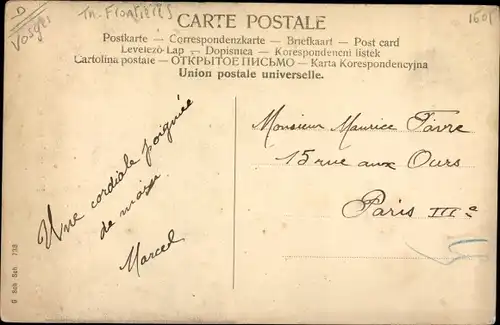 D
Vosges
Th. Frontières
1601
CARTE POSTALE
Postkarte — Correspondenzkarte — Briefkaart — Post card
Levelezö-Lap — Dopisnica — Korespondencní lístek
Cartolina postale — ОТКРЫТОЕ ПИСЬМО — Karta Korespondencyjna
Union postale universelle.
Une cordiale poignée
de main
Marcel
Monsieur Maurice Favre
15 rue aux Ours
Paris IIIe
G Sch Sah. 738